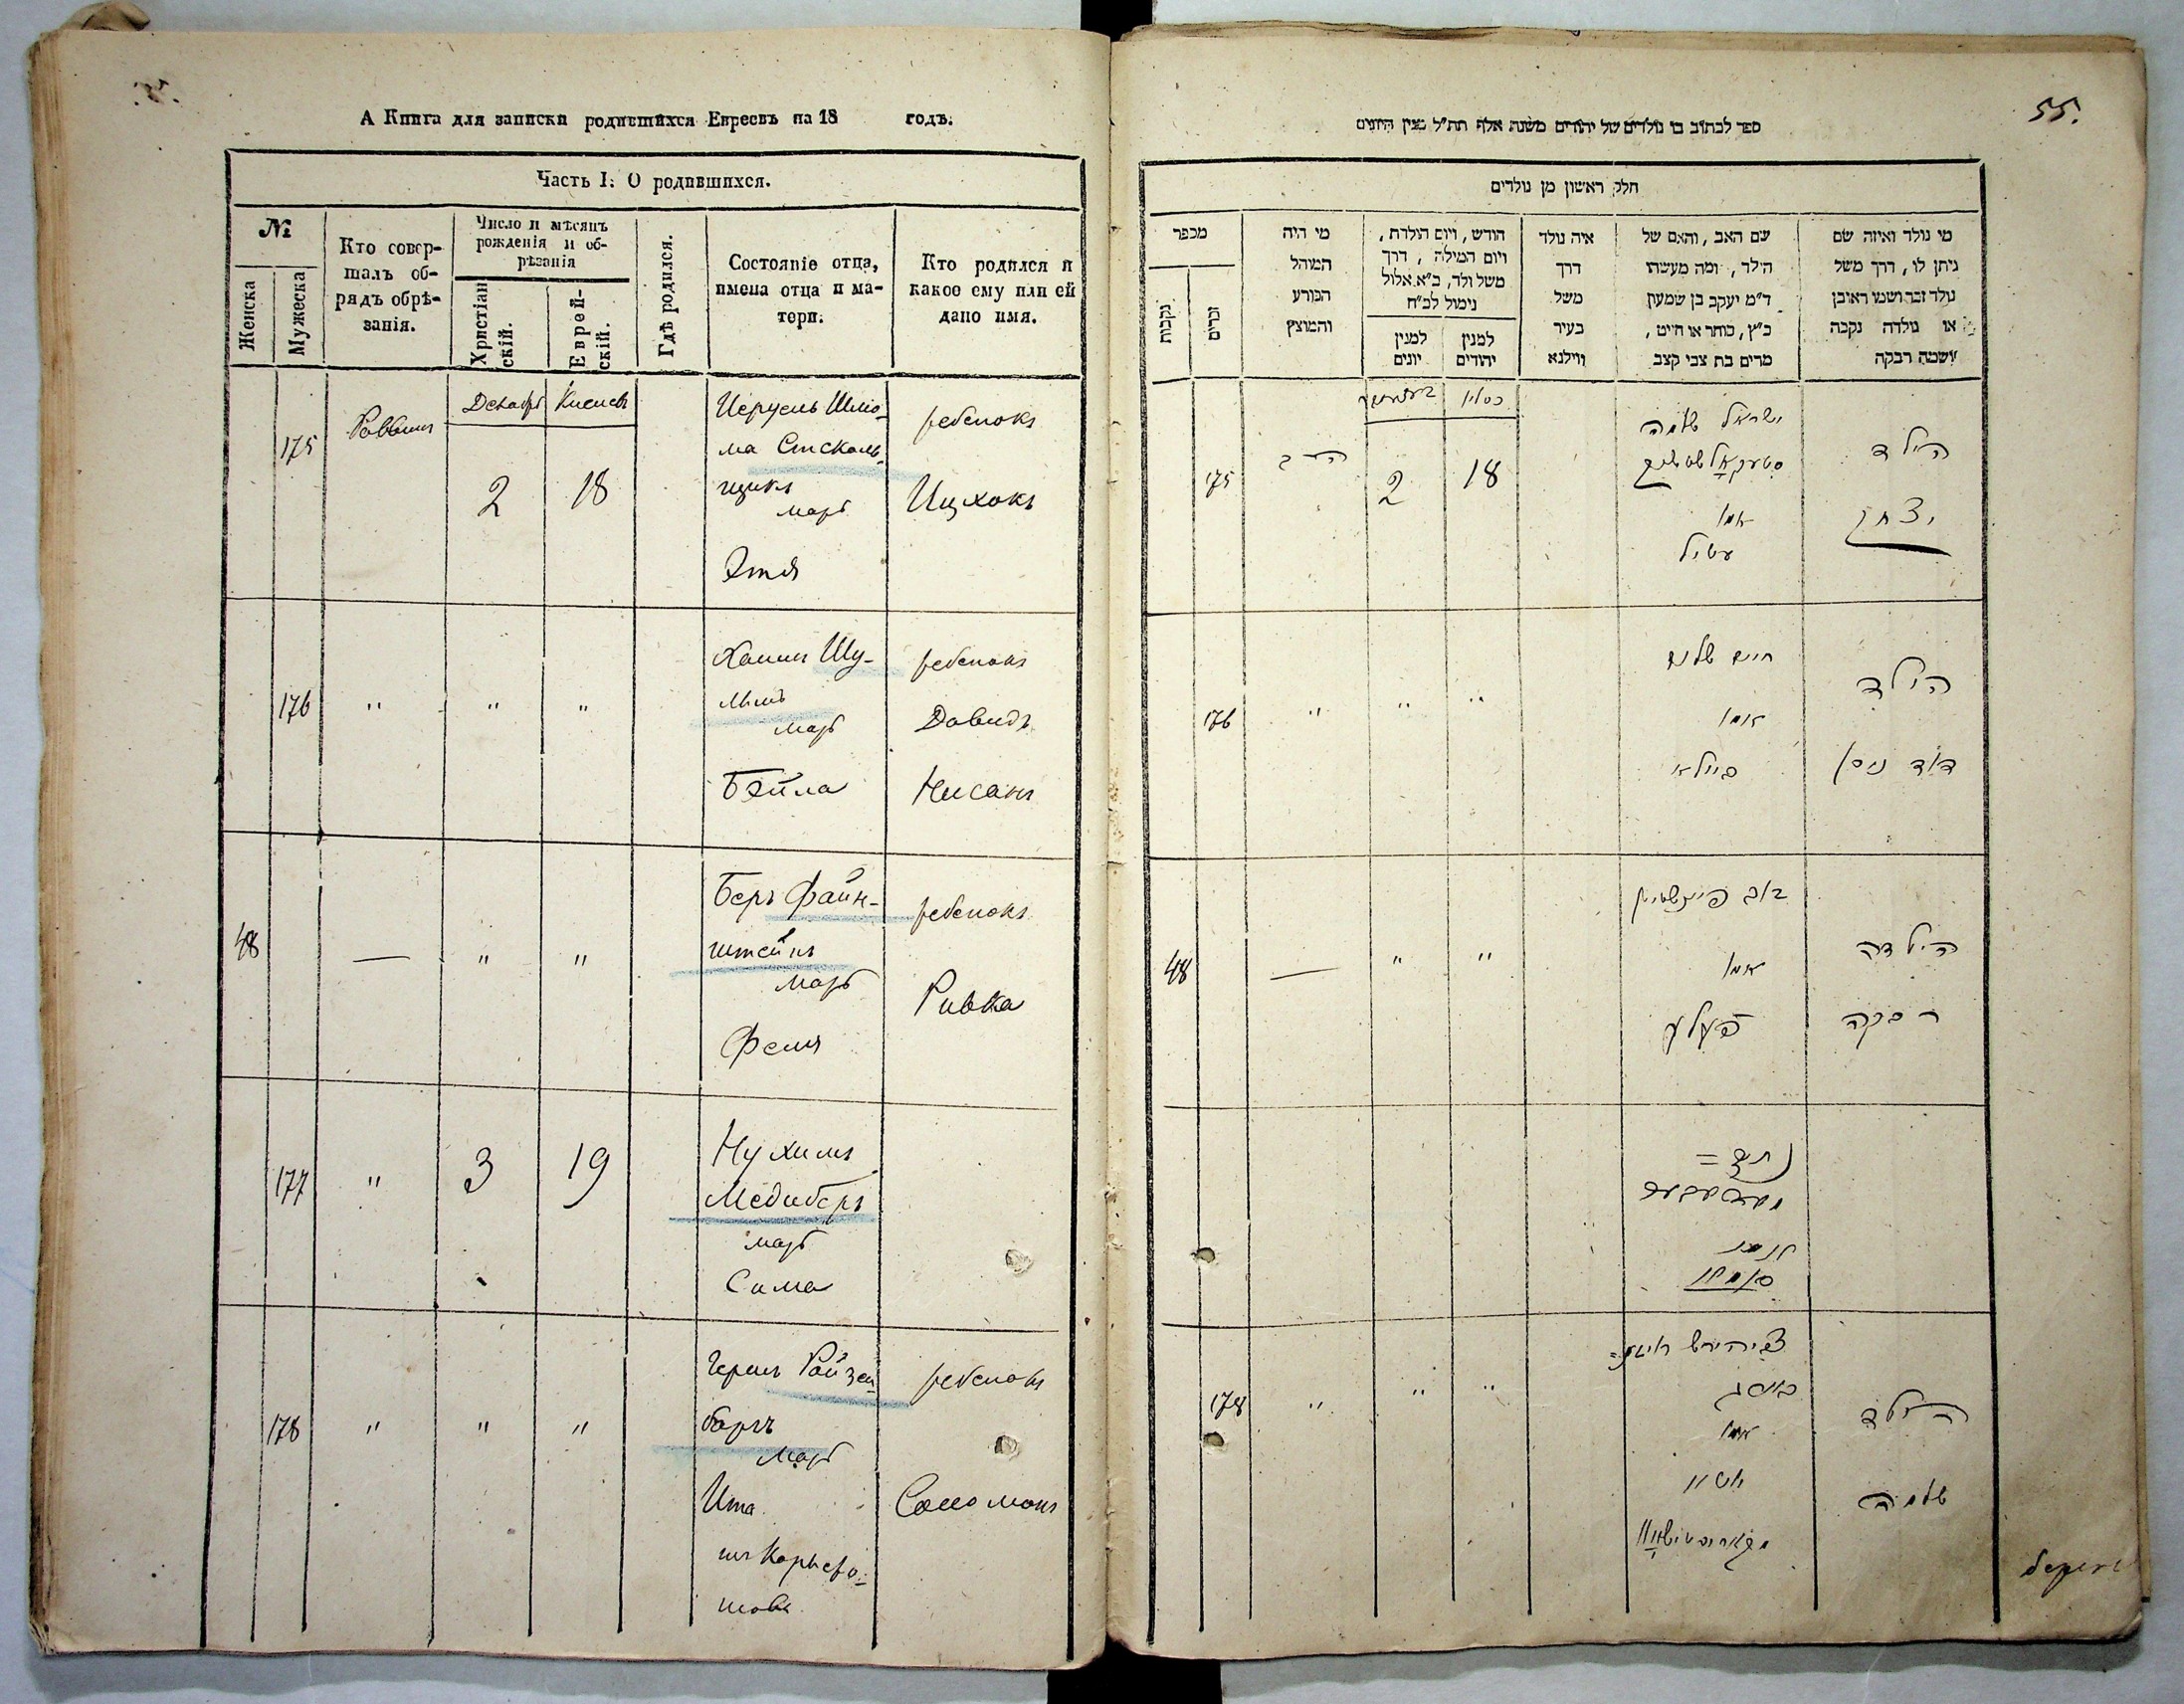 А Книга для записки родившихся Евреевъ на 18 годъ.
Часть I: О родившихся.
№
Женска
Мужеска
Кто совер-
шалъ об-
рядъ обрѣ-
занія.
Число и мѣсяцъ
рожденія и об-
рѣзанія
Христіан
скій.
Еврей-
скій.
Гдѣ родился.
Состояніе отца,
имена отца и ма-
тери.
Кто родился и
какое ему или ей
дано имя.
175
Раввинъ
Декабрь
Кислевъ
2
18
Шлio-
ма Стеколь-
щикъ
мать
Этя
ребенокъ
Ицхокъ
176
"
"
"
Хаимъ Шу-
мать
Бэйла
ребенокъ
Давидъ
Нисанъ
48
—
"
"
Беръ Файн-
штейнъ
мать
Феля
ребенокъ
Ривка
177
"
3
19
Нухимъ
Медиберъ
мать
Сима
178
"
"
"
Гершъ Райзен
бергъ
мать
Ита
ребенокъ
Соломонъ
55.
ספר לכתוב בו נולדים של יהודים משנת אלף תת״ל מנין היונים
חלק ראשון מן נולדים
מכפר
נקבות
זכרים
מי היה
המוהל
הפורע
והמוצץ
חודש, ויום הולדת,
ויום המילה, דרך
משל ולד, ב״א אלול
נימול לכ״ח
למנין
יונים
למנין
יהודים
איה נולד
דרך
משל
בעיר
ווילנא
שם האב, והאם של
הילד, ומה מעשהו
ד״מ יעקב בן שמעון
כ״ץ, סוחר או חייט,
מרים בת צבי קצב
מי נולד ואיזה שם
ניתן לו, דרך משל
נולד זכר ושמו ראובן
או נולדה נקבה
ושמה רבקה
175
הרב
2
כסליו
18
ישראל שלמה
אמו
עטיל
הילד
יצחק
176
"
"
"
חיים
אמו
ביילא
הילד
דוד ניסן
48
—
"
"
דוב פיינשטיין
אמו
פעלע
הילדה
רבקה
נחום =
178
"
"
"
צבי הירש
אמו
הילד
שלמה